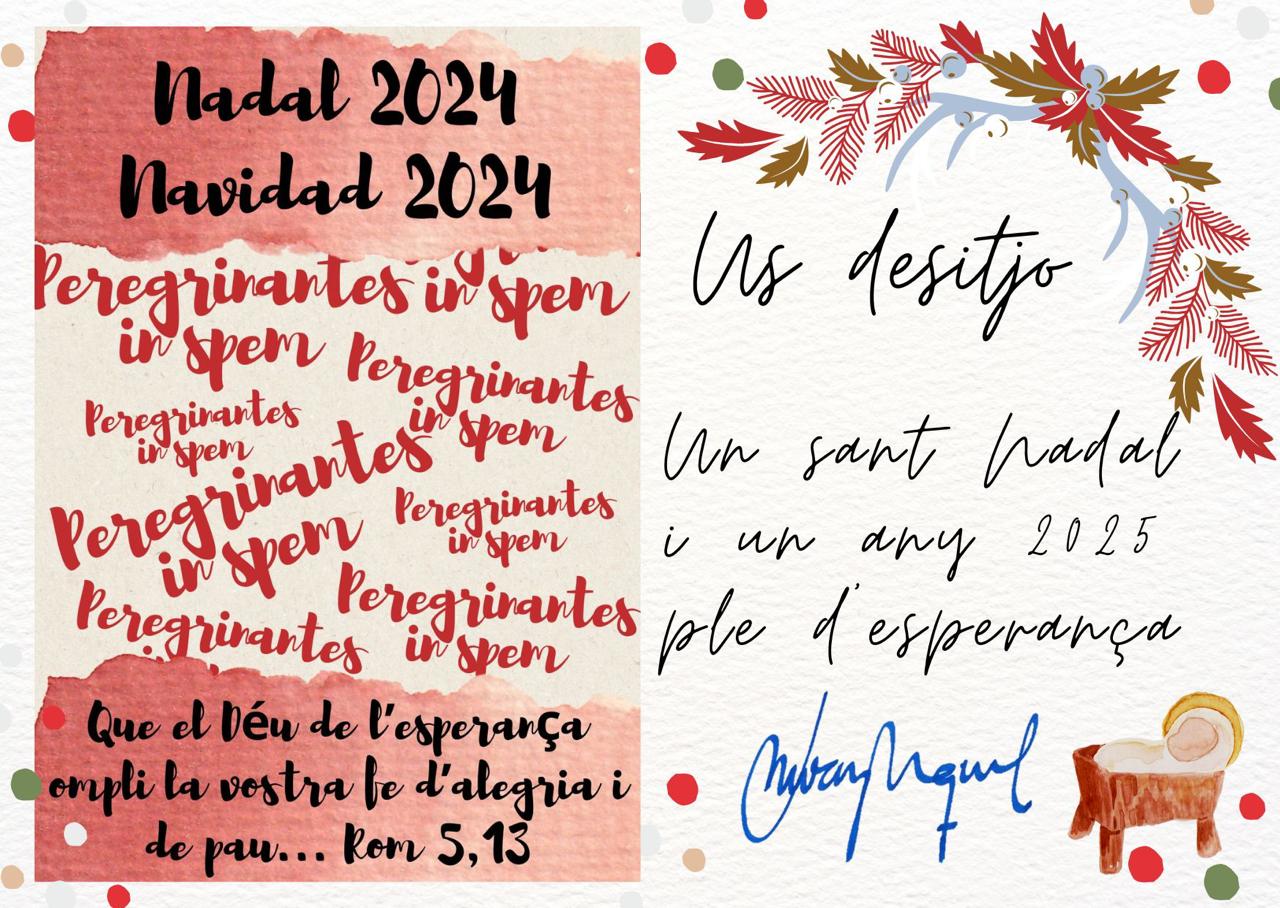 Nadal 2024
Navidad 2024
Peregrinantes
in spem
in spem
Peregrinantes
in spem
Peregrinantes
in spem
Peregrinantes
in spem
Peregrinantes
in spem
Peregrinantes
Peregrinantes
in spem
Que el Déu de l'esperança
ompli la vostra fe d'alegria i
de pau... Rom 5,13
Us desitjo
Un sant Nadal
i un any 2025
ple d'esperança